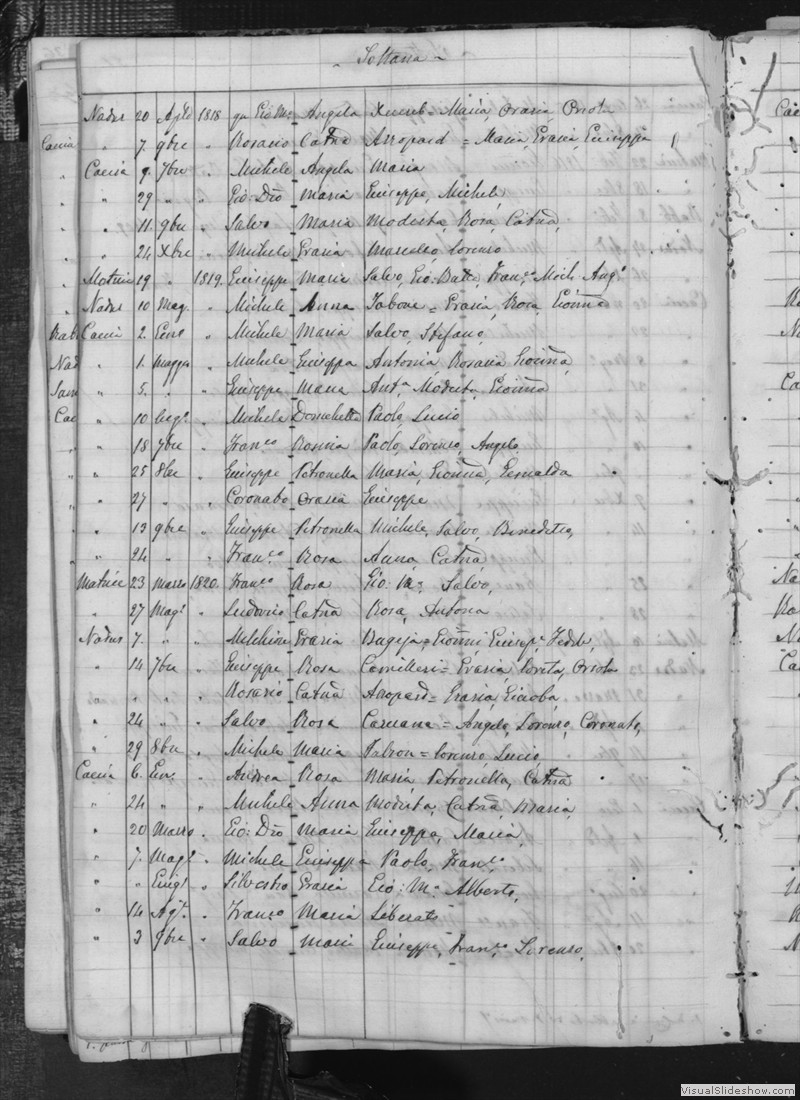 Sultana
Nadur 20 Ag.to 1818 qu Gio M.a Angela Xuereb = Maria, Grazia, Orsola
Caccia " 7 9bre " Rosario Cat.na Azzopard = Maria Grazia Giuseppa
" Caccia 9 7bre " Michele Angela Maria
" " 29 " " Gio: Dño Maria Giuseppe, Michele,
" " 11 9bre " Salvo Maria Modesta, Rosa, Catña,
" " 24 Xbre " Michele Grazia Marcello, Lorenzo
" Matrice 19 " 1819. Giuseppe Maria Salvo, Gio: Batt.a Fran.co Mich. Ang.o
" Nadur 10 Mag. " Michele Anna Tabone = Grazia, Rosa, Gioñna
Rab Caccia 2. Gen.o " Michele Maria Salvo, Stefano,
Nad " 1. Maggio " Michele Giuseppa Antonia, Rosaria, Gioñna,
San " 5. " " Giuseppe Maria Ant.a Modesta, Gioñna
Cac " 10 Lug.o " Michele Domenchetta Paolo, Lucio
" " 18 7bre " Fran.co Rosina Paolo, Lorenzo, Angelo
" " 25 8bre " Giuseppe Petronella Maria, Gioñna, Esmalda
" " 27 " " Coronato Grazia Giuseppe
" 13 9bre " Giuseppe Petronella Michele, Salvo, Benedetto,
" 24 " " Fran.co Rosa Anna, Catña
Matrice 23 Marzo 1820. Fran.co Rosa Gio: M.a Salvo,
" 27 Mag.o " Ludovico Catña Rosa, Antonia
Nadur 7. " " Melchior Grazia Bugeja = Gioñni Giusep.e Fedele,
" 14 7bre " Giuseppe Rosa Camilleri = Grazia, Loreta, Orsola
" " " " Rosario Catña Azopard = Grazia, Giacobu,
" 24 " " Salvo Rosa Caruana = Angelo, Lorenzo, Coronato,
" 29 8bre " Michele Maria Falzon = Lorenzo, Lucio,
Caccia 6. Gen.o " Andrea Rosa Maria, Petronella, Catña
" 24 " " Michele Anna Modesta, Catña, Maria,
" 20 Marzo " Gio: Dño Maria Giuseppa, Maria,
" 7. Mag.o " Michele Giuseppa Paolo, Fran.co
" " Giug.o " Silvestro Grazia Gio: M.a Alberto,
" 14 Ag.to " Franco Maria Liberato
" 3 9bre " Salvo Maria Giuseppe, Fran.co Lorenzo,
VisualSlideshow.com